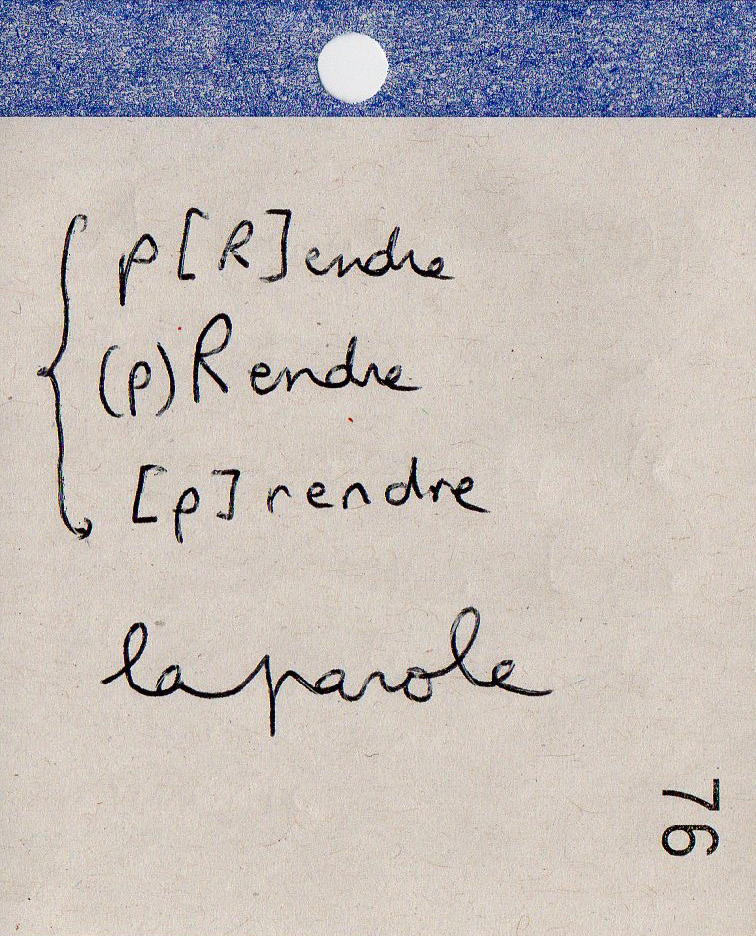 p[R]endre
(p)Rendre
[p]rendre
la parole
76